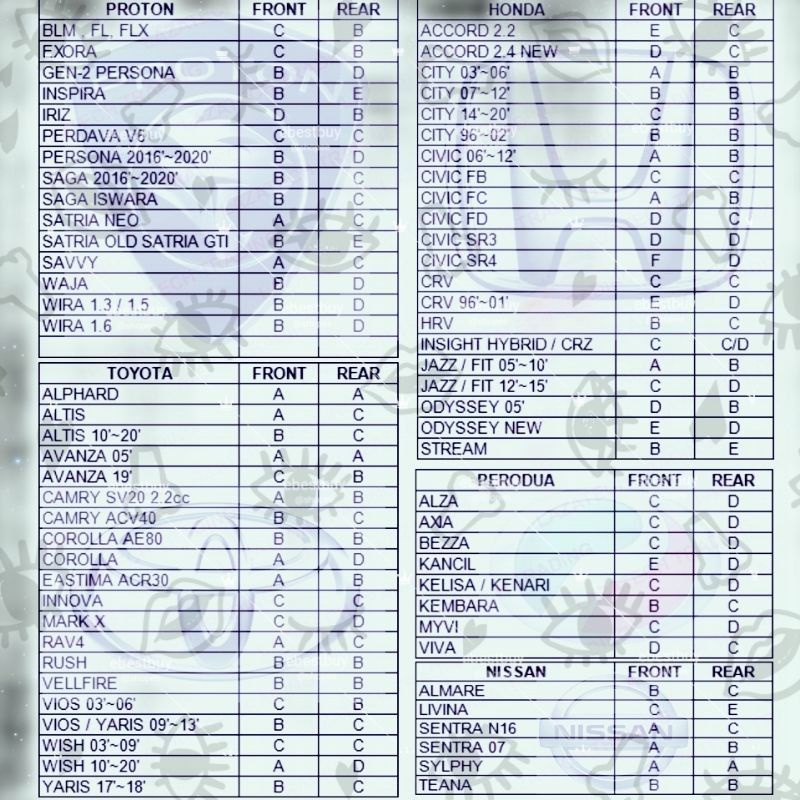 PROTON FRONT REAR
BLM , FL, FLX C B
F.XORA C B
GEN-2 PERSONA B D
INSPIRA B E
IRIZ D B
PERDAVA V6 C C
PERSONA 2016'~2020' B D
SAGA 2016'~2020' B C
SAGA ISWARA B C
SATRIA NEO A C
SATRIA OLD SATRIA GTI B E
SAVVY A C
WAJA B D
WIRA 1.3 / 1.5 B D
WIRA 1.6 B D
TOYOTA FRONT REAR
ALPHARD A A
ALTIS A C
ALTIS 10'~20' B C
AVANZA 05' A A
AVANZA 19' C B
CAMRY SV20 2.2cc A B
CAMRY ACV40 B C
COROLLA AE80 B B
COROLLA A D
EASTIMA ACR30 A B
INNOVA C C
MARK X C D
RAV4 A C
RUSH B B
VELLFIRE B B
VIOS 03'~06' C B
VIOS / YARIS 09'~13' B C
WISH 03'~09' C C
WISH 10'~20' A D
YARIS 17'~18' B C
HONDA FRONT REAR
ACCORD 2.2 E C
ACCORD 2.4 NEW D C
CITY 03'~06' A B
CITY 07'~12' B B
CITY 14'~20' C B
CITY 96'~02' B B
CIVIC 06'~12' A B
CIVIC FB C C
CIVIC FC A B
CIVIC FD D C
CIVIC SR3 D D
CIVIC SR4 F D
CRV C C
CRV 96'~01' E D
HRV B C
INSIGHT HYBRID / CRZ C C/D
JAZZ / FIT 05'~10' A B
JAZZ / FIT 12'~15' C D
ODYSSEY 05' D B
ODYSSEY NEW E D
STREAM B E
PERODUA FRONT REAR
ALZA C D
AXIA C D
BEZZA C D
KANCIL E D
KELISA / KENARI C D
KEMBARA B C
MYVI C D
VIVA D C
NISSAN FRONT REAR
ALMARE B C
LIVINA C E
SENTRA N16 A C
SENTRA 07 A B
SYLPHY A A
TEANA B B
NISSAN
ebestbuy